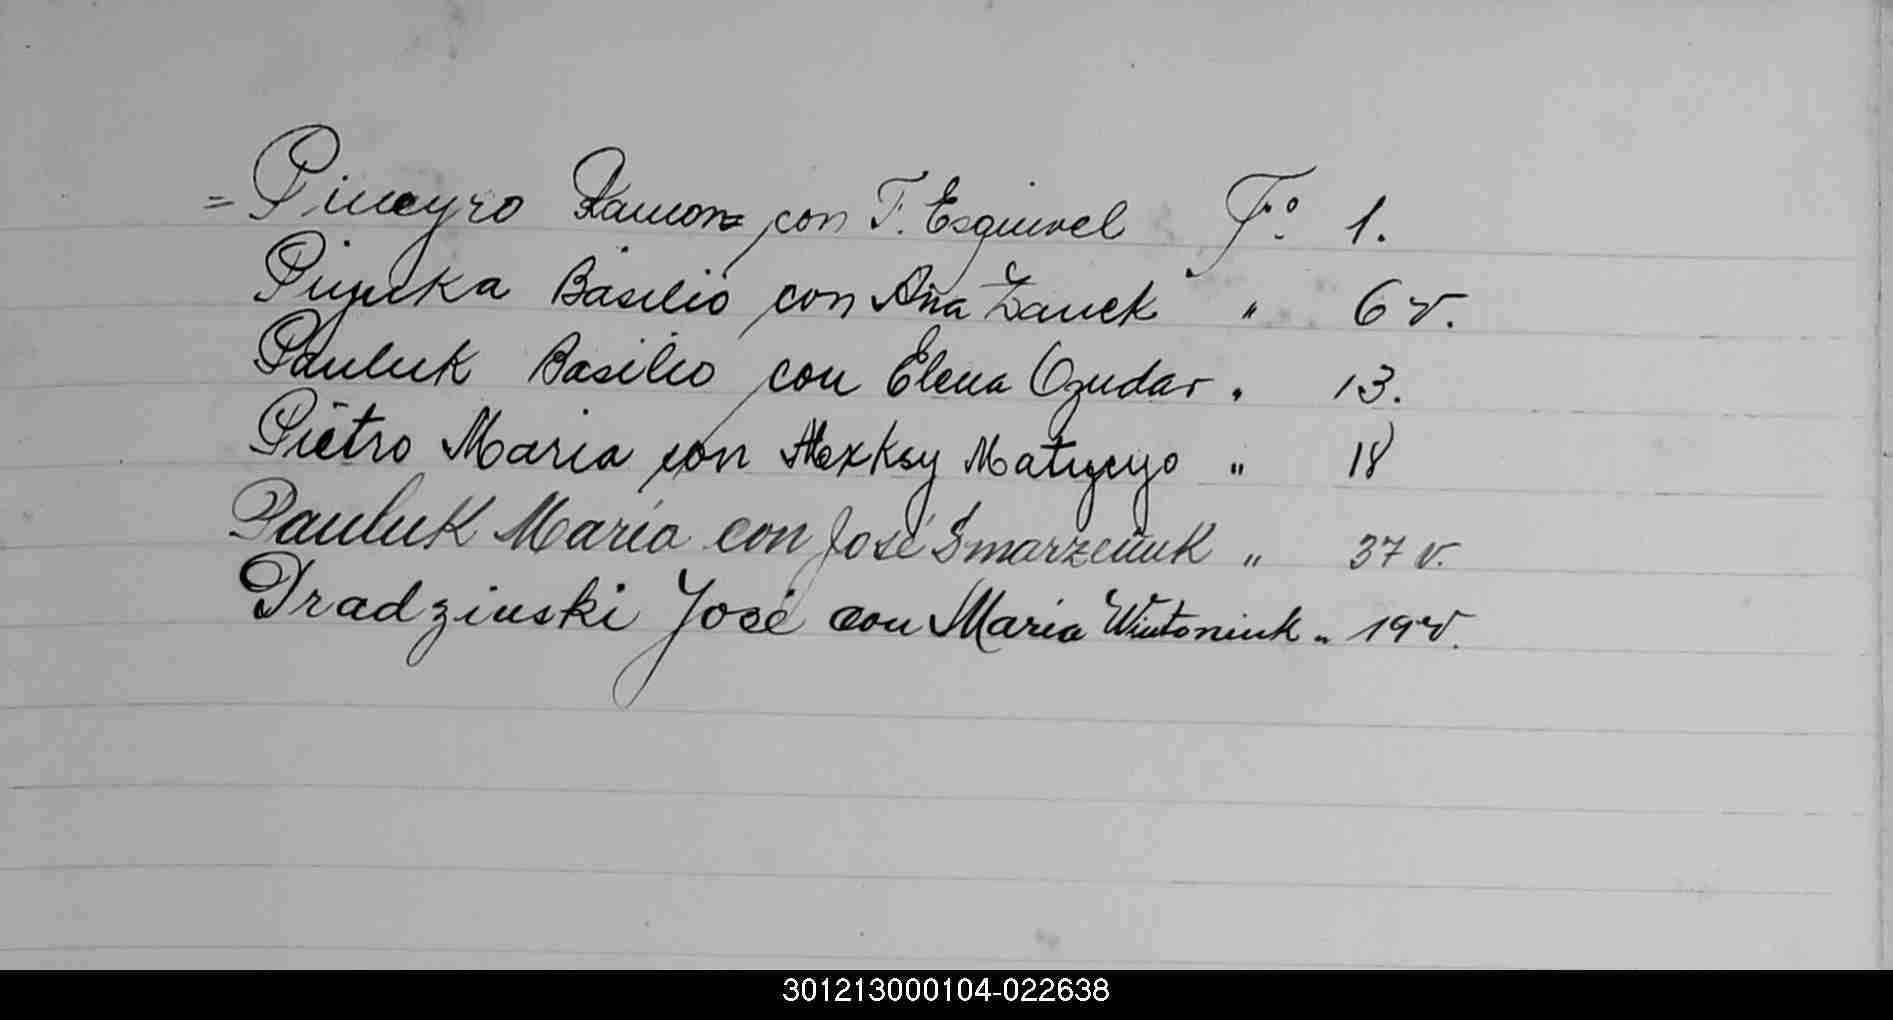 = Pineyro Ramon con T. Esquivel Fº 1.
Basilio con Ana Zanek " 6 v.
Pauluk Basilio con Elena Ozudar " 13.
Pietro Maria con Alexksy " 18
Pauluk María con José Smarzeniuk " 37 v.
Pradzinski José con María Wintoniuk " 19 v.
301213000104-022638